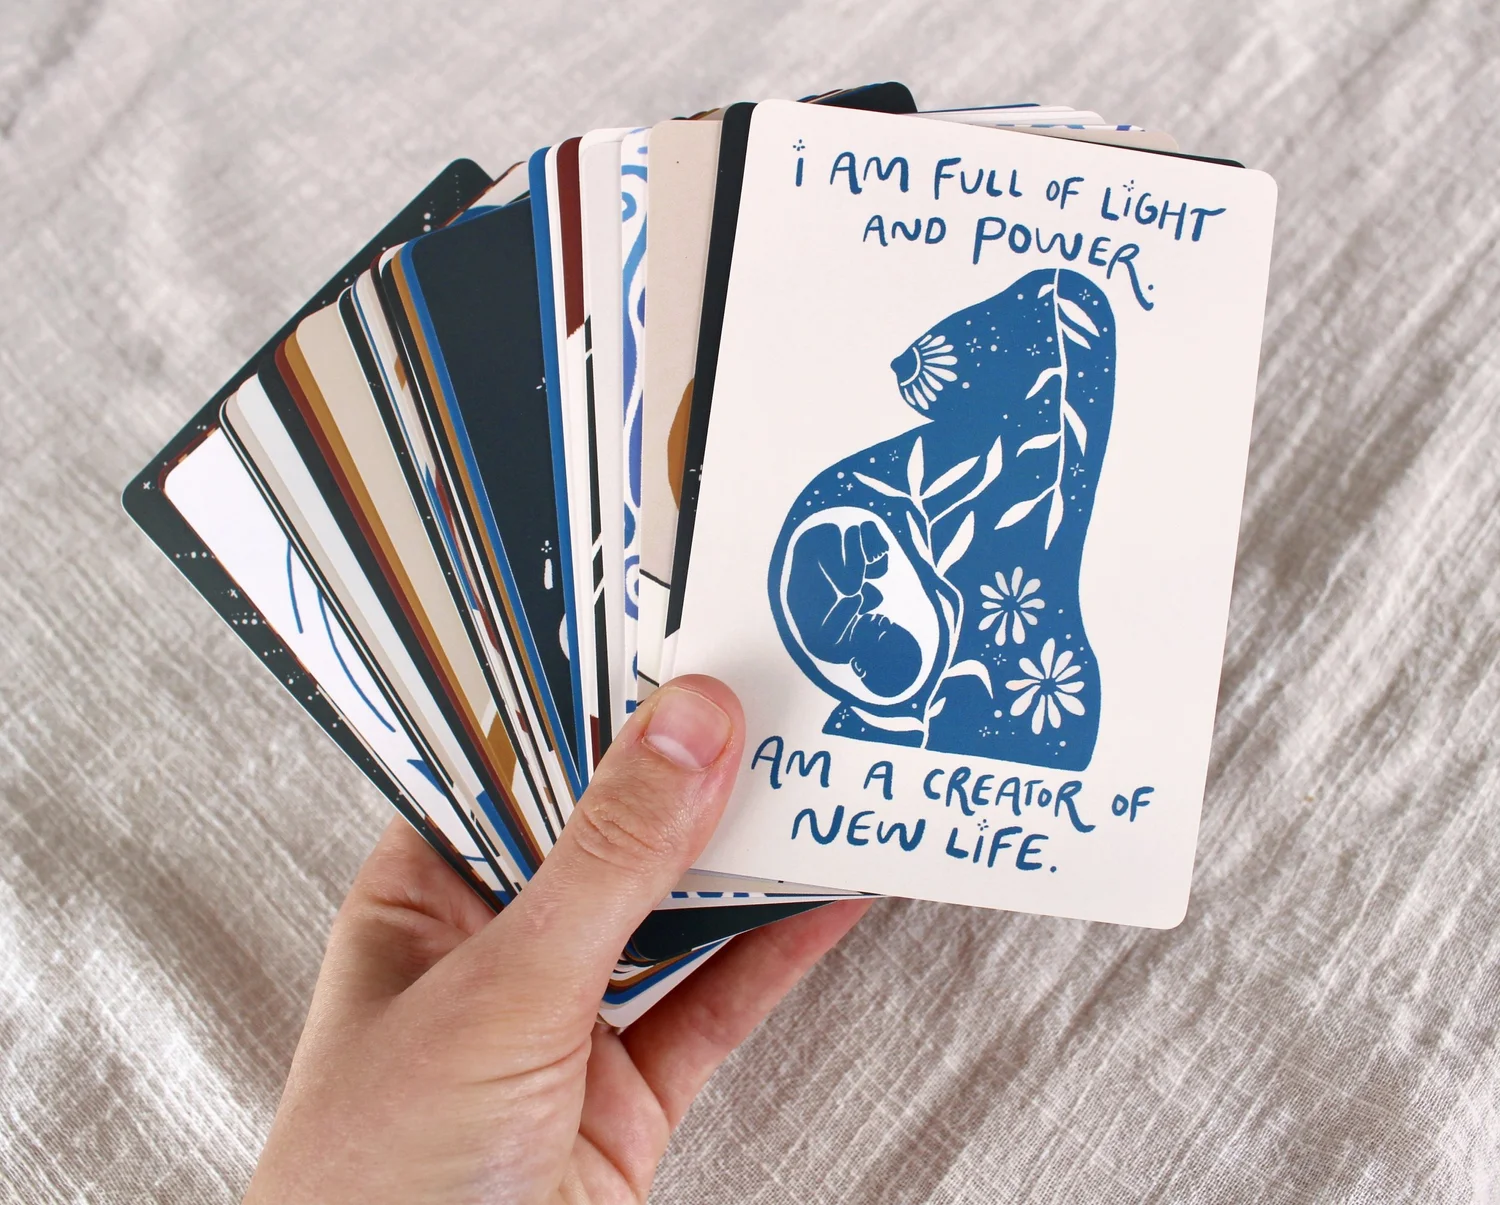 i AM FULL OF LiGHT
AND POWER.
AM A CREATOR OF
NEW LiFE.